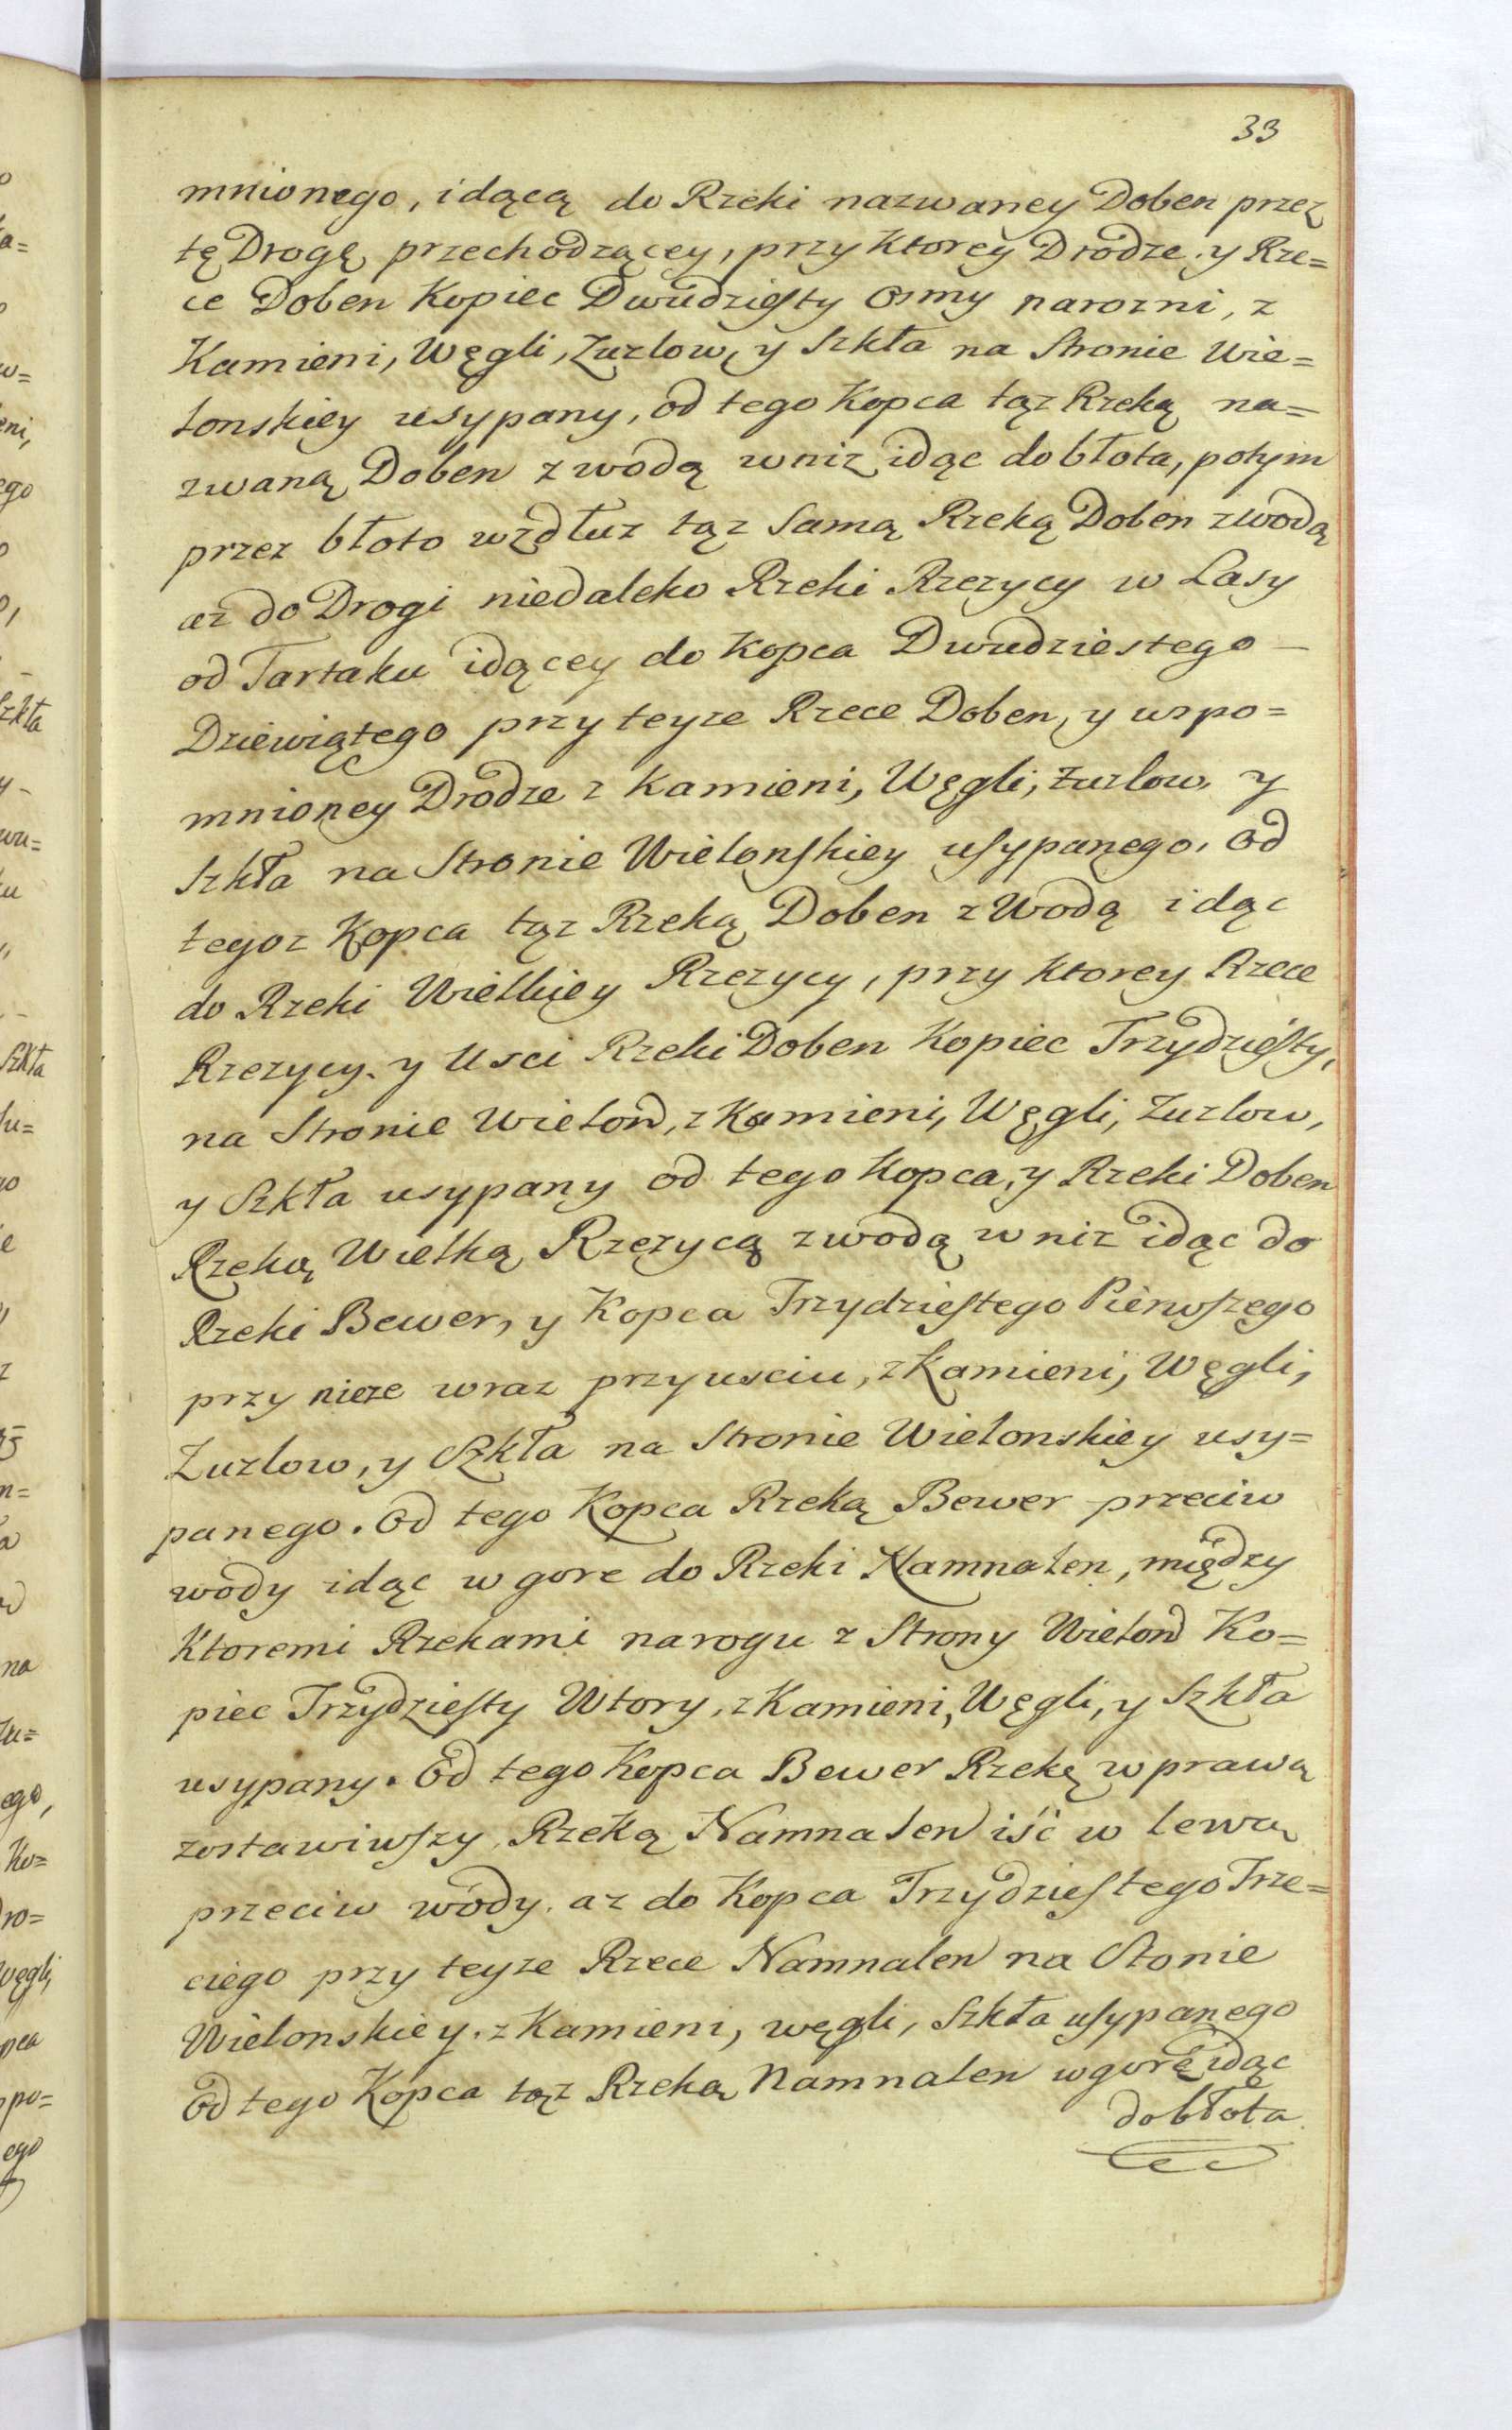 33
mnionego, idącą do Rzeki nazwaney Doben przez
tę Drogę przechodzącey, przy Ktorey Drodze y Rze=
ce Doben Kopiec Dwudziesty Osmy narozni, z
Kamieni, Węgli, Zuzlow, y Szkła na Stronie Wie=
lonskiey usypany, od tego Kopca tąz Rzeką na=
zwaną Doben z wodą wniz idąc do błota, potym
przez błoto wzdłuz tąz Samą Rzeką Doben z wodą
az do Drogi niedaleko Rzeki Rzezycy w Lasy
od Tartaku idącey do Kopca Dwudziestego
Dziewiątego przy teyze Rzece Doben, y wspo=
mnioney Drodze z Kamieni, Węgli, Zuzlow, y
Szkła na Stronie Wielonskiey usypanego. od
tegoz Kopca tąz Rzeką Doben z Wodą idąc
do Rzeki Wielkiey Rzezycy, przy Ktorey Rzece
Rzezycy. y Usci Rzeki Doben Kopiec Trzydziesty,
na Stronie Wielon, z Kamieni, Węgli, Zuzlow,
y Szkła usypany od tego Kopca, y Rzeki Doben
Rzeką Wielką Rzezycą z wodą wniz idąc do
Rzeki Bewer, y Kopca Trzydziestego Pierwszego
przy nieze wraz przy usciu, z Kamieni, Węgli,
Zuzlow, y Szkła na Stronie Wielonskiey usy=
panego. Od tego Kopca Rzeką Bewer przeciw
wody idąc w gore do Rzeki Namnalen, między
Ktoremi Rzekami narogu z Strony Wielon Ko=
piec Trzydziesty Wtory, z Kamieni, Węgli, y Szkła
usypany. Od tego Kopca Bewer Rzekę w prawą
zostawiwszy, Rzeką Namnalen iść w lewą
przeciw wody. az do Kopca Trzydziestego Trze=
ciego przy teyze Rzece Namnalen na Stonie
Wielonskiey. z Kamieni, węgli, Szkła usypanego
Od tego Kopca tąz Rzeką Namnalen wgorę idąc
do błota